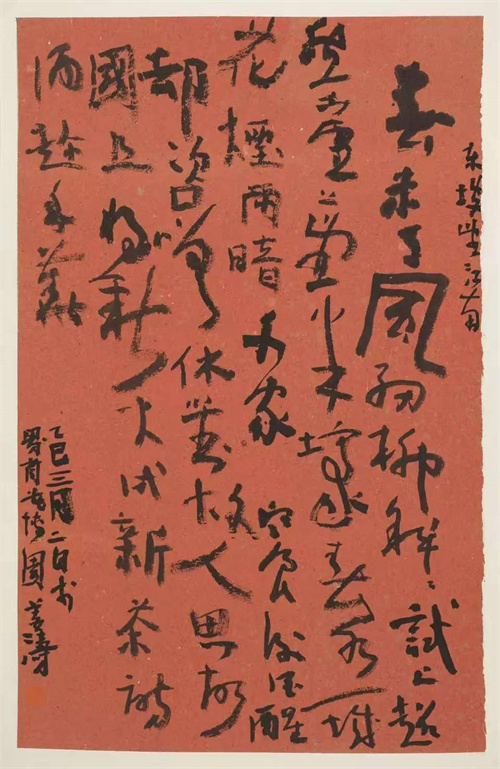 东坡望江南
春未老風細柳斜〻試上超
然臺上望半壕春水一城
花煙雨暗千家寒食後酒醒
却咨嗟休對故人思故
國且將新火試新茶詩
酒趁年華
乙巳三月二日書
園
濤